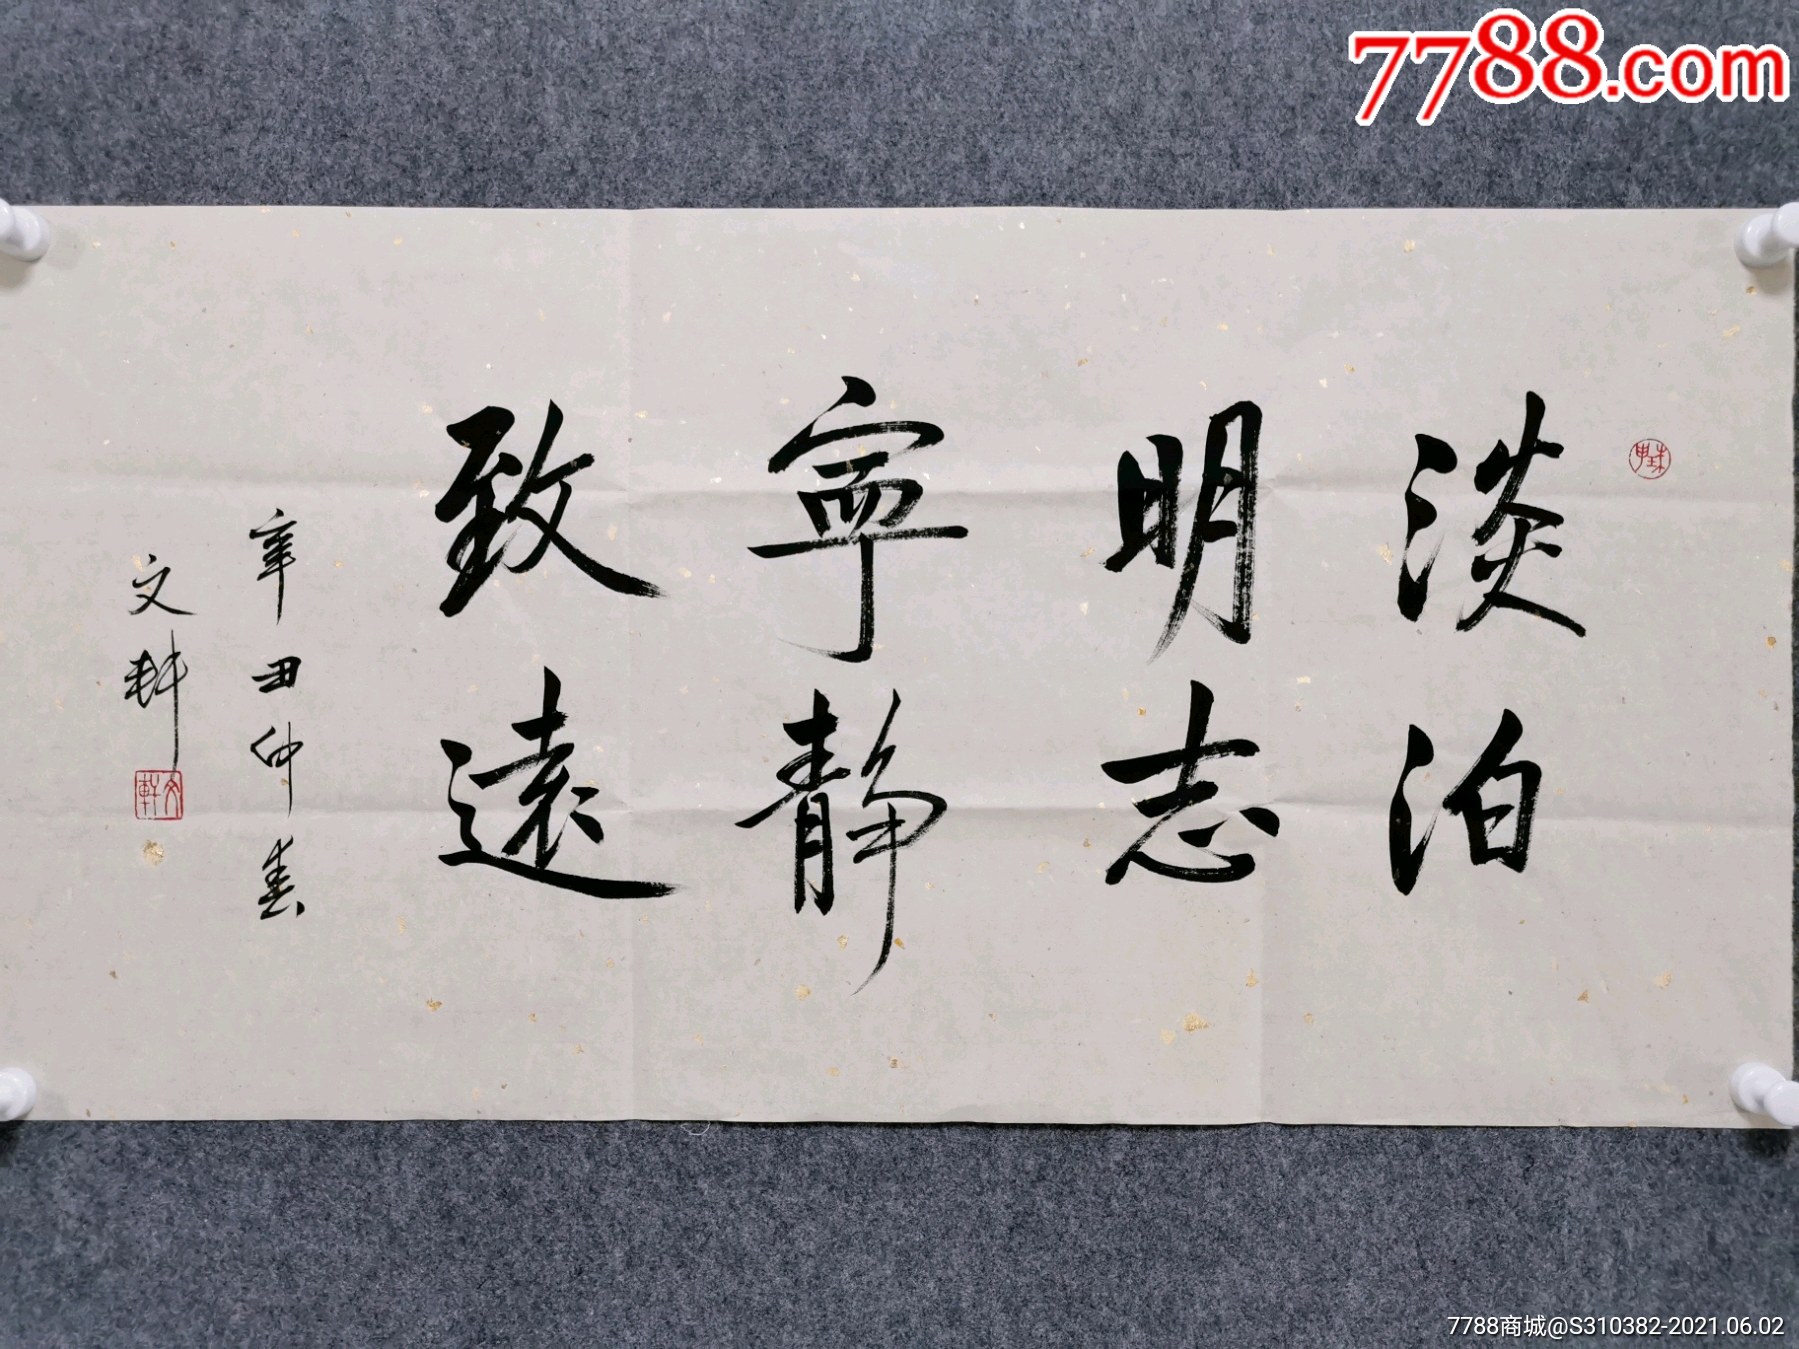 7788.com
淡泊
明志
寧靜
致遠
辛丑仲春
文軒
文軒
7788商城@S310382-2021.06.02